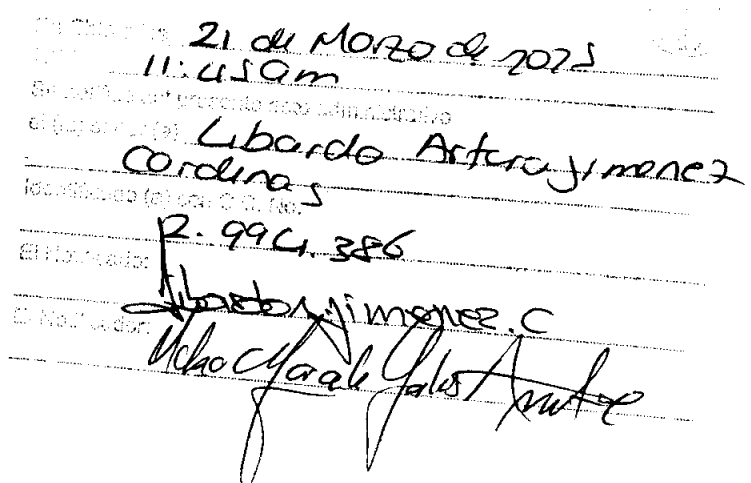 21 de Marzo de 2025
11:45am
Se notifica el presente acto administrativo
el (la) señor(a) Libardo Arturo Jimenez
Cardenas
Identificado (a) con C.C. No.
12.994.386
El Notificado:
Libardo Jimenez. C
El Notificador: